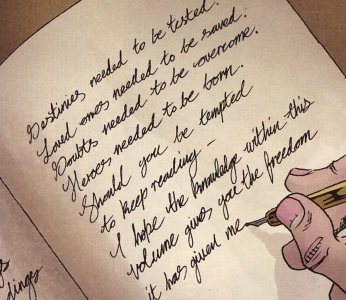 Destinies needed to be tested.
Loved ones needed to be saved.
Doubts needed to be overcome.
Heroes needed to be born.
Should you be tempted
to keep reading –
I hope the knowledge within this
volume gives you the freedom
it has given me